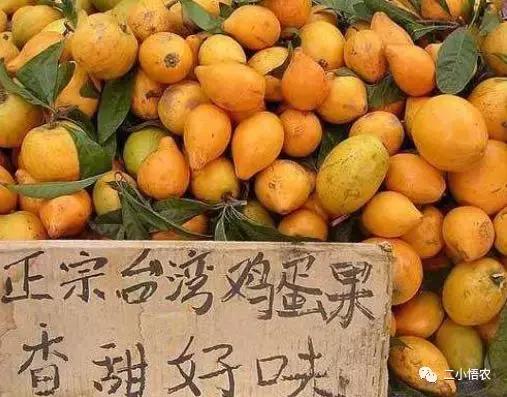 正宗台湾鸡蛋果
香甜好味
二小悟农